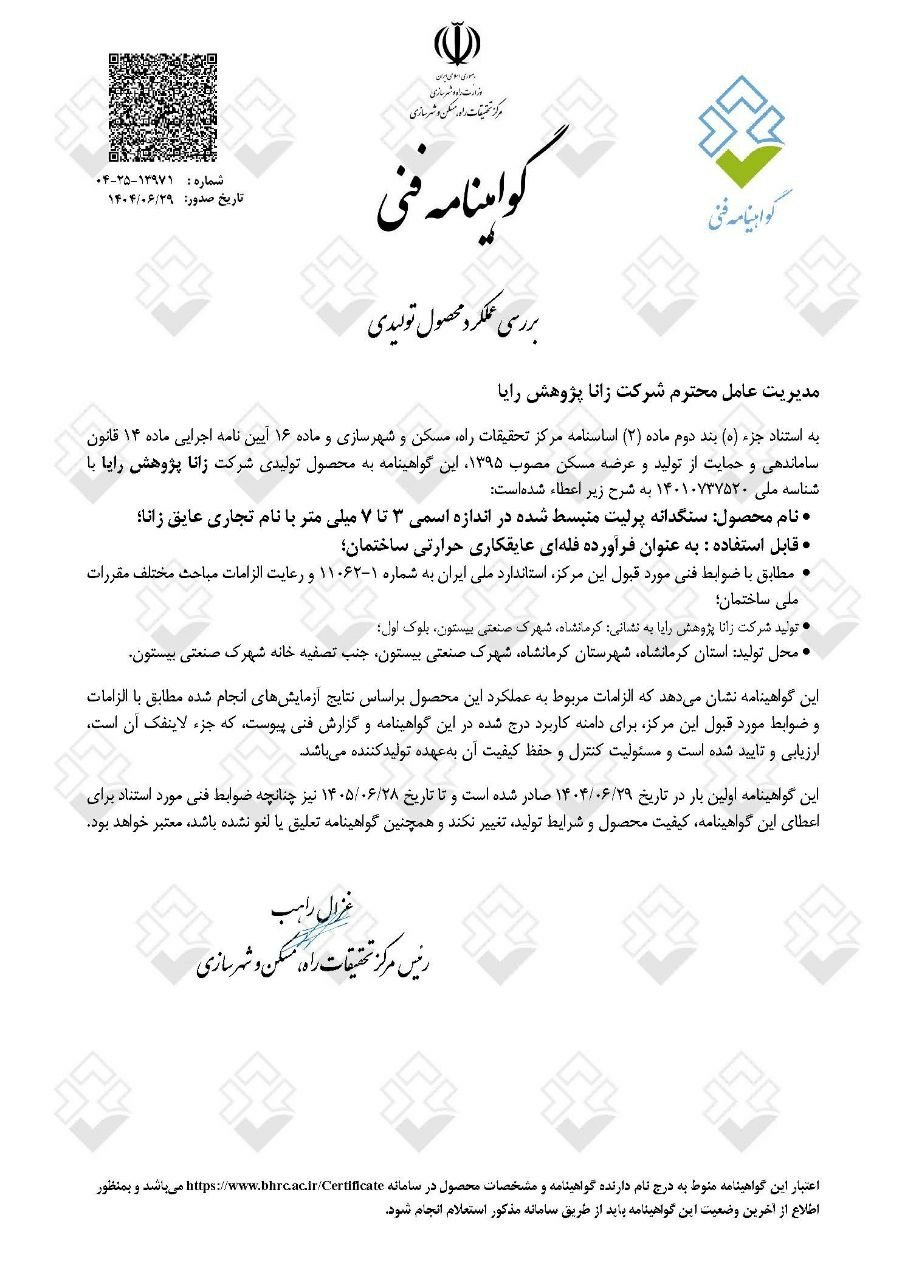 جمهوری اسلامی ایران
وزارت راه و شهرسازی
مرکز تحقیقات راه، مسکن و شهرسازی
گواهینامه فنی
گواهینامه فنی
شماره : ۱۳۹۷۱-۲۵-۰۴
تاریخ صدور: ۱۴۰۴/۰۶/۲۹
بررسی عملکرد محصول تولیدی
مدیریت عامل محترم شرکت زانا پژوهش رایا
به استناد جزء (ه) بند دوم ماده (۲) اساسنامه مرکز تحقیقات راه، مسکن و شهرسازی و ماده ۱۶ آیین نامه اجرایی ماده ۱۴ قانون
ساماندهی و حمایت از تولید و عرضه مسکن مصوب ۱۳۹۵، این گواهینامه به محصول تولیدی شرکت زانا پژوهش رایا با
شناسه ملی ۱۴۰۱۰۷۳۷۵۲۰ به شرح زیر اعطاء شده‌است:
• نام محصول: سنگدانه پرلیت منبسط شده در اندازه اسمی ۳ تا ۷ میلی متر با نام تجاری عایق زانا؛
• قابل استفاده : به عنوان فرآورده فله‌ای عایقکاری حرارتی ساختمان؛
• مطابق با ضوابط فنی مورد قبول این مرکز، استاندارد ملی ایران به شماره ۱-۱۱۰۶۲ و رعایت الزامات مباحث مختلف مقررات
ملی ساختمان؛
• تولید شرکت زانا پژوهش رایا به نشانی: کرمانشاه، شهرک صنعتی بیستون، بلوک اول؛
• محل تولید: استان کرمانشاه، شهرستان کرمانشاه، شهرک صنعتی بیستون، جنب تصفیه خانه شهرک صنعتی بیستون.
این گواهینامه نشان می‌دهد که الزامات مربوط به عملکرد این محصول براساس نتایج آزمایش‌های انجام شده مطابق با الزامات
و ضوابط مورد قبول این مرکز، برای دامنه کاربرد درج شده در این گواهینامه و گزارش فنی پیوست، که جزء لاینفک آن است،
ارزیابی و تایید شده است و مسئولیت کنترل و حفظ کیفیت آن به‌عهده تولیدکننده می‌باشد.
این گواهینامه اولین بار در تاریخ ۱۴۰۴/۰۶/۲۹ صادر شده است و تا تاریخ ۱۴۰۵/۰۶/۲۸ نیز چنانچه ضوابط فنی مورد استناد برای
اعطای این گواهینامه، کیفیت محصول و شرایط تولید، تغییر نکند و همچنین گواهینامه تعلیق یا لغو نشده باشد، معتبر خواهد بود.
غزال راهب
رئیس مرکز تحقیقات راه، مسکن و شهرسازی
اعتبار این گواهینامه منوط به درج نام دارنده گواهینامه و مشخصات محصول در سامانه https://www.bhrc.ac.ir/Certificate می‌باشد و بمنظور
اطلاع از آخرین وضعیت این گواهینامه باید از طریق سامانه مذکور استعلام انجام شود.